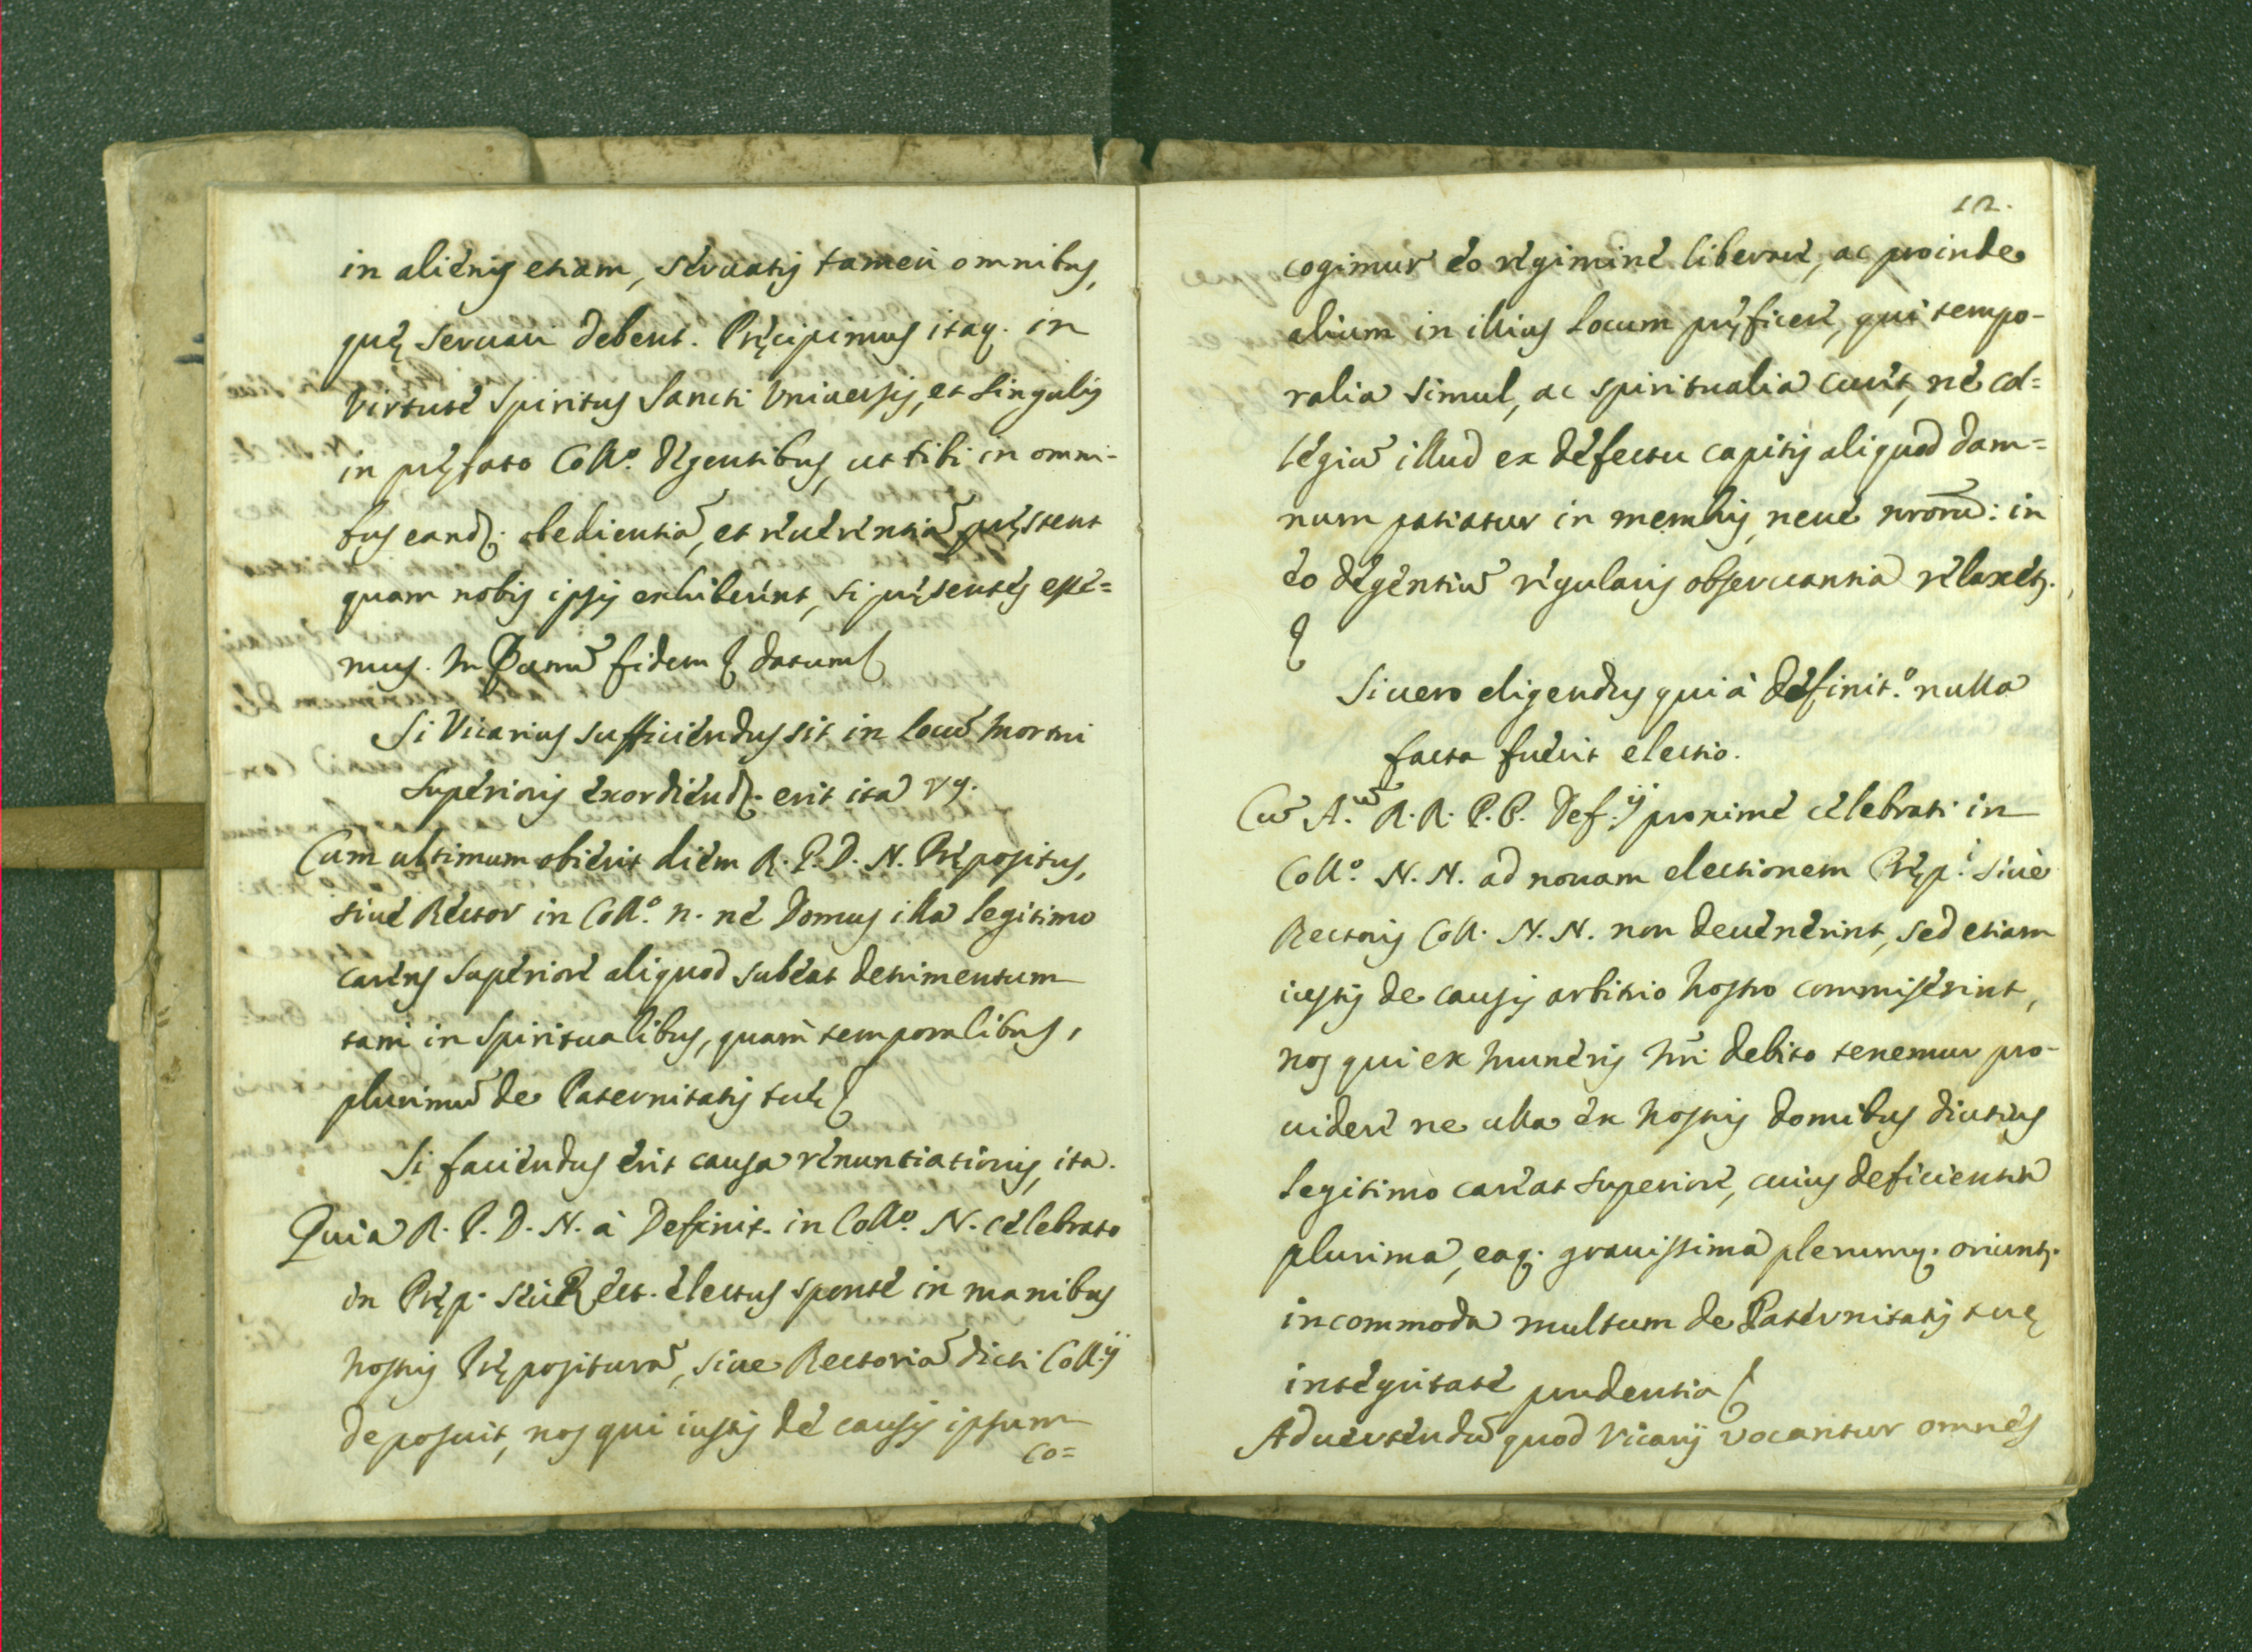 in alienis etiam, seruatis tamen omnibus,
quę seruari debent. Pręcipimus itaq. in
virtute Spiritus Sancti Vniuersis, et singulis
in pręfato Coll.º degentibus, ut tibi in omni-
bus eand. obedientiã, et reuerentiã pręstent
quam nobis ipsis exhiberent, si pręsentes esse=
mus. In Quarũ fidem & datum &
Si Vicarius sufficiendus sit in locũ mortui
Superioris exordiend. erit ita vg.
Cum ultimum obierit diem R. P. D. N. Prępositus,
siue Rector in Coll.º n. ne Domus illa legitimo
carens superiore aliquod subeat detrimentum
tam in Spiritualibus, quam temporalibus,
plurimũ de Paternitatis tuę &
Si faciendus erit causa renuntiationis, ita.
Quia R. P. D. N. à Definit. in Coll.º N. celebrato
in Pręp. seu Rect. electus sponte in manibus
nostris Pręposituram, siue Rectoriã dicti Coll.ij
deposuit, nos qui iustis de causis ipsum
co=
12.
cogimur eo regimine liberare, ac proinde
alium in illius locum pręficere, qui tempo-
ralia simul, ac spiritualia curet, ne col=
legiũ illud ex defectu capitis aliquod dam=
num patiatur in membris, neue nrõrũ: in
eo degentiũ regularis obseruantia relaxet.
&
Si uero eligendus quia à definit.º nulla
facta fuerit electio.
Cũ A. R. R. P. P. Def.ij proxime celebrati in
Coll.º N. N. ad nouam electionem Pręp.i siue
Rectoris Coll. N. N. non deuenerint, sed etiam
iustis de causis arbitrio nostro commiserint,
nos qui ex muneris nr̃i debito tenemur pro-
uidere ne ulla ex nostris domibus diutius
legitimo careat superiore, cuius deficientia
plurima, eaq. grauissima plerumq. oriunt.
incommoda multum de Paternitatis tuę
integritate prudentia &
Aduertendũ quod Vicarij vocantur omnes